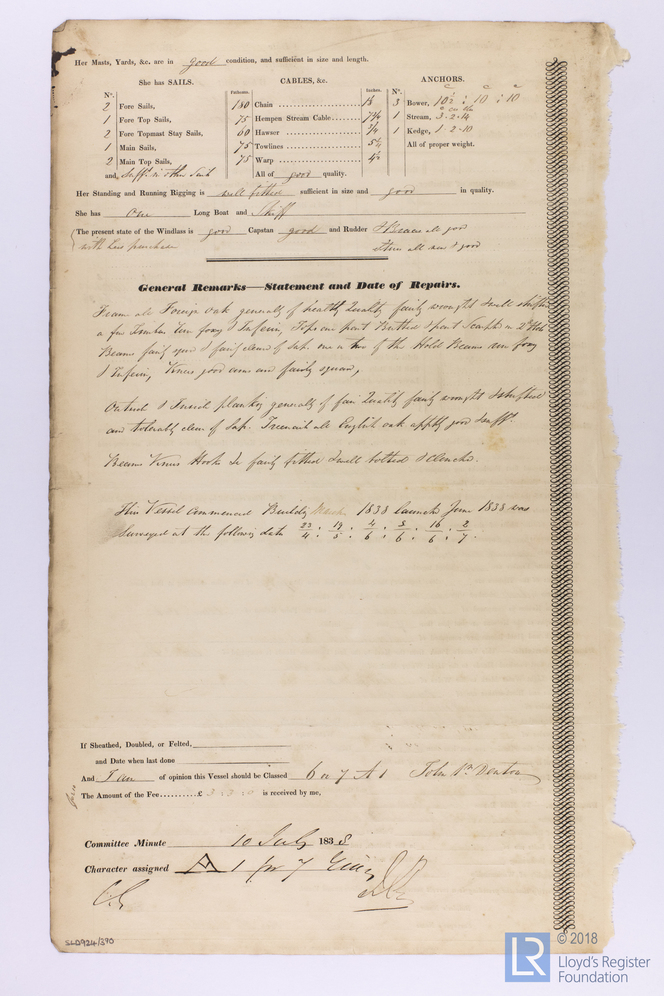 Her Masts, Yards, &c. are in good condition, and sufficient in size and length.
She has SAILS.
CABLES, &c.
ANCHORS.
N°.
Fathoms.
Inches.
N°.
2 Fore Sails,
180 Chain
3 Bower, 10½ : 10 : 10
1 Fore Top Sails,
75 Hempen Stream Cable
1 Stream, 3-2-14
2 Fore Topmast Stay Sails,
60 Hawser
1 Kedge, 1-2-10
1 Main Sails,
75 Towlines
5½
All of proper weight.
2 Main Top Sails,
75 Warp
4½
and, Suff.t in other Sails
All of good quality.
Her Standing and Running Rigging is well fitted sufficient in size and good in quality.
She has One Long Boat and Skiff
The present state of the Windlass is good Capstan good and Rudder
with purchase
General Remarks—Statement and Date of Repairs.
Frame all Foreign Oak generally of healthy Quality fairly wrought & well shifted
a few Timbers
Beams fairly & fairly clear of Sap. one or two of the Hold Beams
Knees good and fairly square,
Outside & Inside planking generally of fair Quality fairly wrought & shifted
and tolerably clear of Sap. Treenails all English oak good & suff.t
Beams Knees Hooks &c fairly fitted & well bolted & Clenched.
This Vessel Commenced Building March 1838 launched June 1838 was
Surveyed at the following date 23/4 : 19/5 : 4/6 : 8/6 : 16/6 : 2/7.
If Sheathed, Doubled, or Felted,
and Date when last done
And I am of opinion this Vessel should be Classed 6 or 7 A 1 John Denton
The Amount of the Fee.......... £ 3 : 3 : 0 is received by me,
Committee Minute 10 July 1838
Character assigned A 1 for 7 Years
SLD924/390
LR
© 2018
Lloyd's Register
Foundation